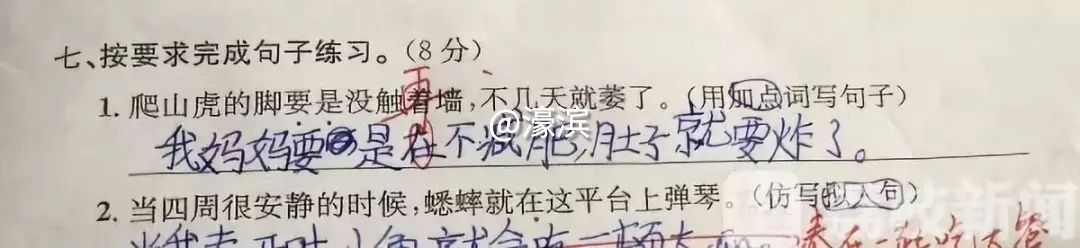 七、按要求完成句子练习。(8分)
再
1. 爬山虎的脚要是没触着墙,不几天就萎了。(用加点词写句子)
@濠滨
我妈妈要是在不减肥,肚子就要炸了。
2. 当四周很安静的时候,蟋蟀就在这平台上弹琴。(仿写拟人句)
新闻